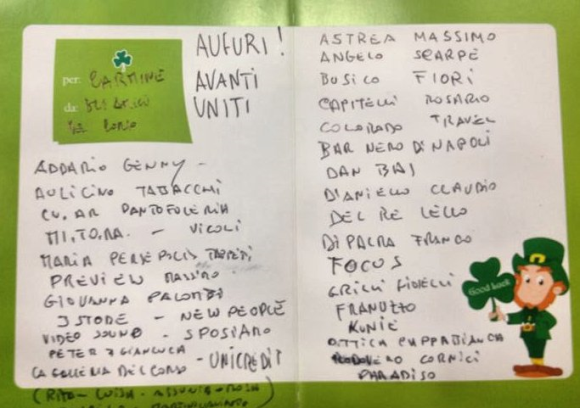 per: CARMINE
da: GLI AMICI
DEL CORSO
AUGURI!
AVANTI
UNITI
ADDARIO GENNY -
AULICINO TABACCHI
CU.AR PANTOFOLERIA
MI.TO.RA. - VICOLI
MARIA PERSEPOLIS TAPPETI
PREVIEW MASSIMO
GIOVANNA PALOMBI
J STORE - NEW PEOPLE
VIDEO SOUND - SPOSIAMO
PETER 7 GIANLUCA
LA GALLERIA DEL CORSO - UNICREDIT
(RITA - LUISA - ASSUNTA - ROSA)
ASTREA MASSIMO
ANGELO SCARPE
BUSICO FIORI
CAPITELLI ROSARIO
COLORADO TRAVEL
BAR NERO DI NAPOLI
DAN BAI
D'ANIELLO CLAUDIO
DEL RE LELLO
DI PALMA FRANCO
FOCUS
GRILLI GIOIELLI
FRANUZZO
KUNIE
OTTICA CUPPABIANCA
CORNICI
PARADISO
Good luck